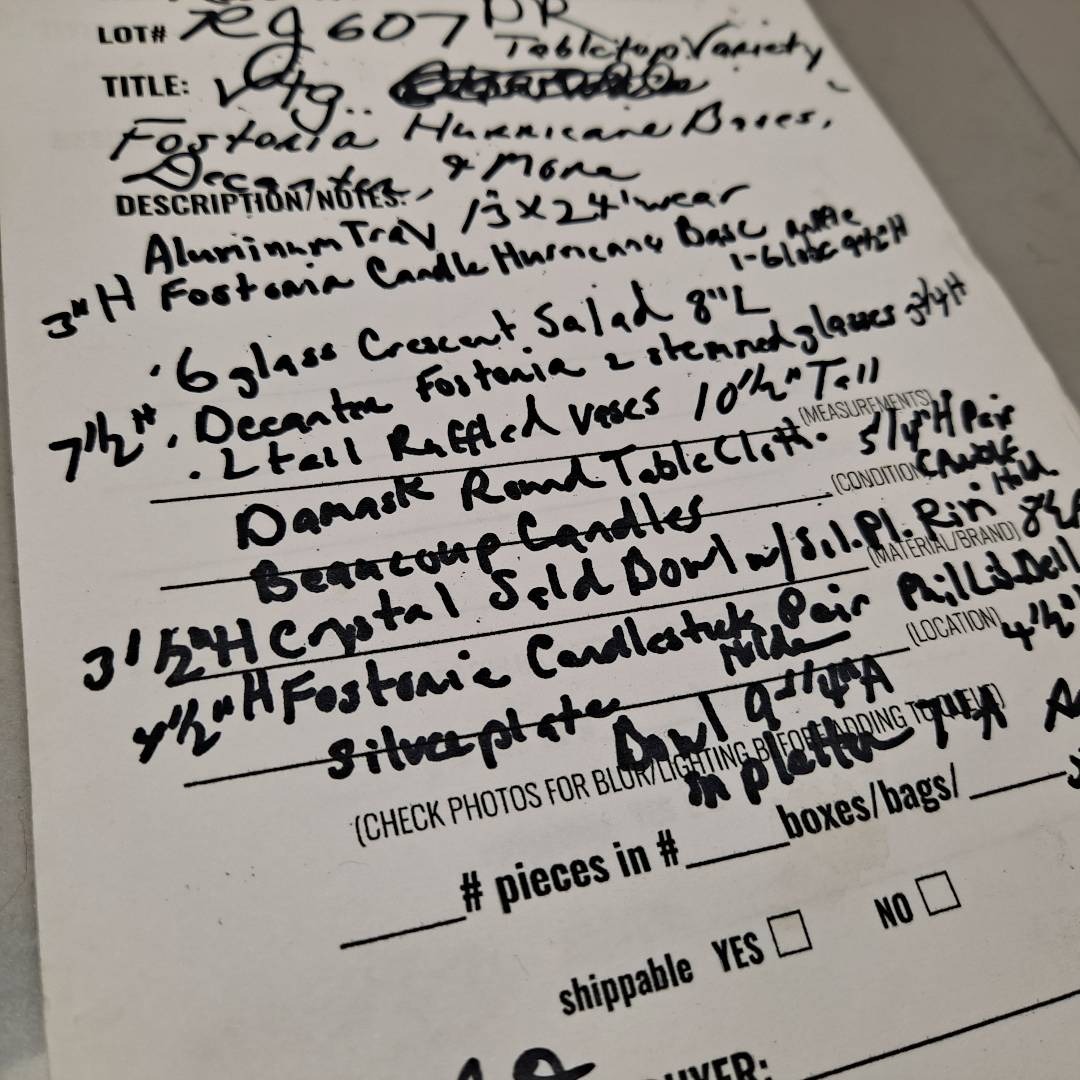 LOT# Rg 607 DR
Tabletop Variety
TITLE: Vtg..
Fostoria Hurricane Bases,
Decanter, & More
DESCRIPTION/NOTES:
Aluminum Tray 13 x 24" wear
3"H Fostoria Candle Hurricane Base
1-Globe 9½"H
· 6 glass Crescent Salad 8"L
7½"H · Decanter Fostoria 2 stemmed glasses 3¼H
· 2 tall Ruffled Vases 10½" Tall
(MEASUREMENTS)
Damask Round Table Cloth · 5¼"H Pair
(CONDITION
Beaucoup Candles
3½"H Crystal Sald Bowl w/ Sil. Pl. Rim
(MATERIAL/BRAND)
4½"H Fostoria Candlestick Pair
(LOCATION) 4½"
Silverplate Bowl 9¾"
platter
(CHECK PHOTOS FOR BLUR/LIGHTING BEFORE ADDING TO
# pieces in # boxes/bags/
shippable YES NO